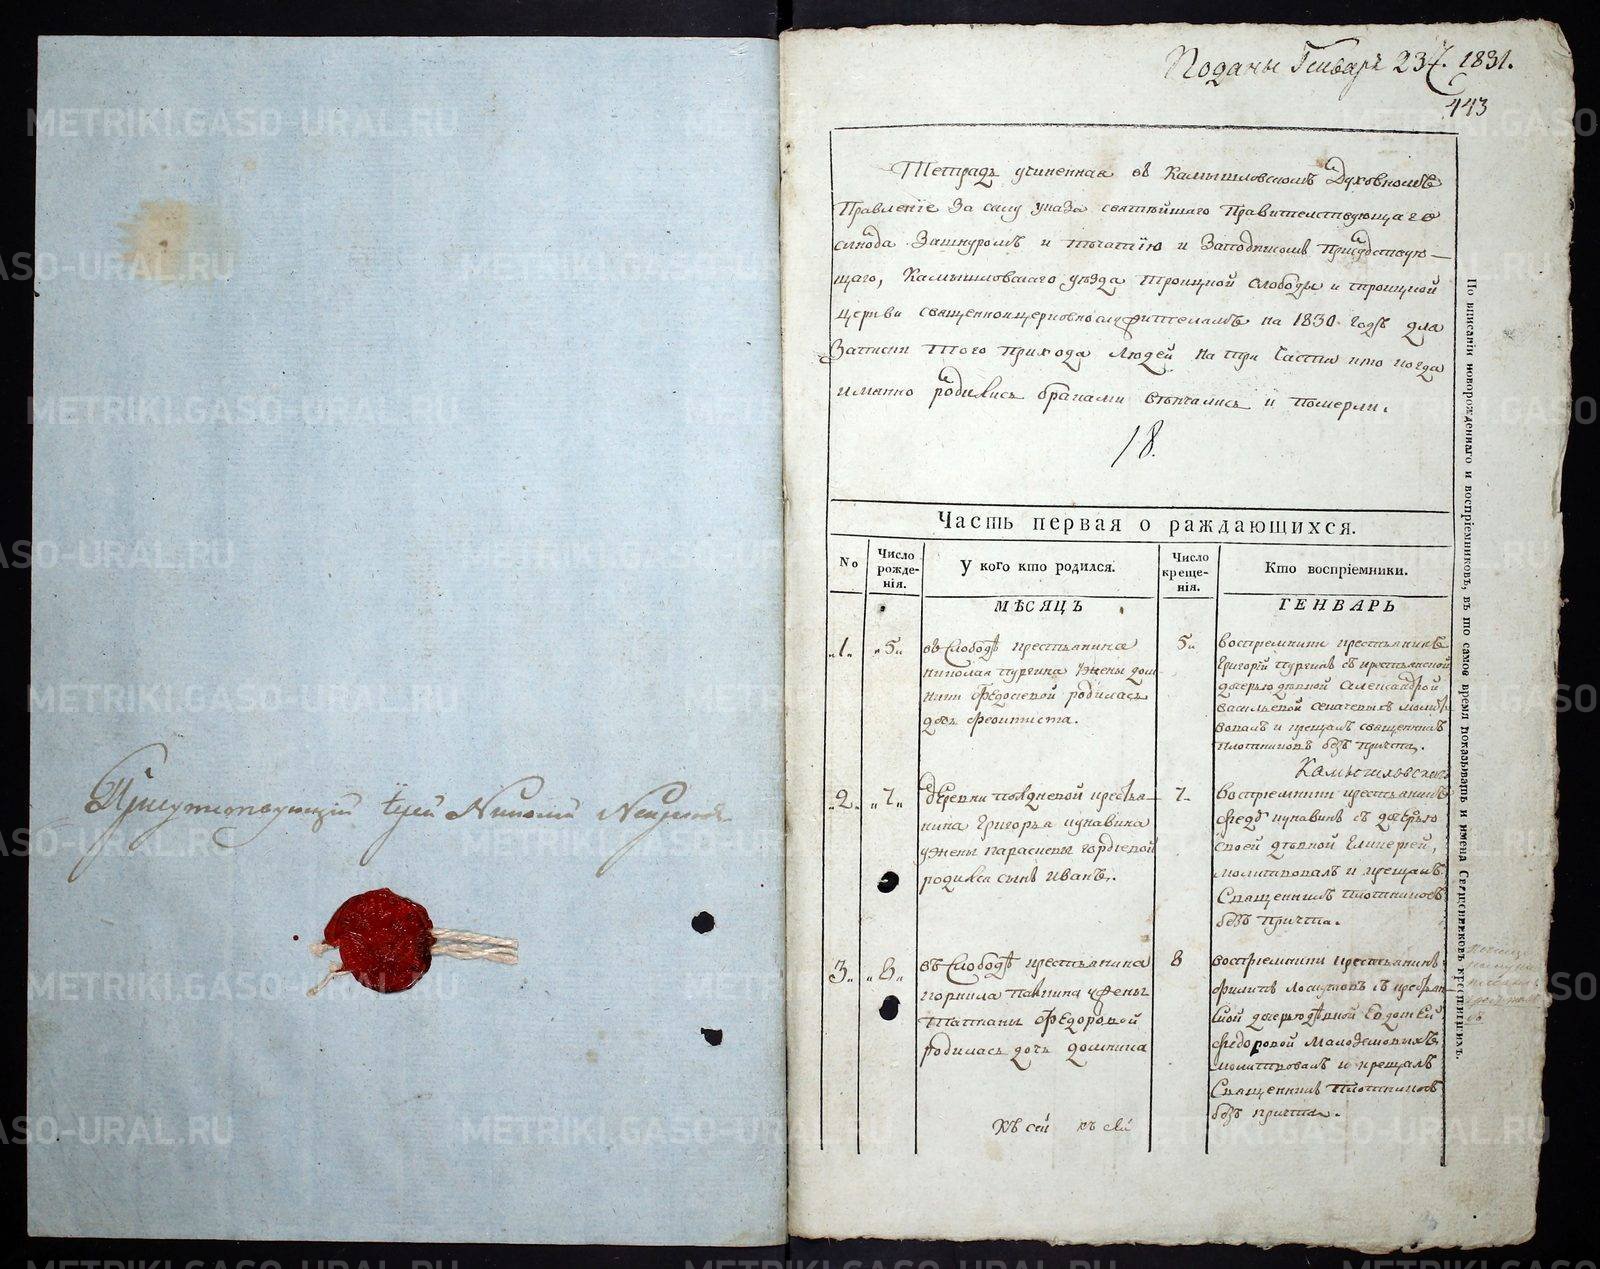 Присутствующий Іерей Николай
Поданы Генваря 23. 1831.
443
Тетрадь учиненная въ Камышловскомъ Духовномъ
Правленіе За силу указа святѣйшаго Правителствующаго
синода Зашнуромъ и печатїю и Заподписомъ присудствую-
щаго, Камышловскаго уѣзда Троицкой слободы и троицкой
церкви священноицерковнослужителямъ на 1830. годъ для
Записки того прихода людей на три Части кто когда
имянно родились браками вѣнчались и померли.
18.
Часть первая о раждающихся.
No
Число рожде-нія.
У кого кто родился.
Число креще-нія.
Кто воспріемники.
МѢСЯЦЪ
ГЕНВАРЬ
1.
5.
въ Слободѣ крестьянина
николая пургина Ужены дом-
ники федосѣевой родилась
дочь феоктиста.
5.
воспремники крестьянинъ
Григорій пургинъ съ крестьянской
дочерью дѣвкой Александрой
васильевой молит-
вовалъ и крещалъ священникъ
плотниковъ безъ причта.
2.
7.
деревни крестья-
нина Григорья кунавина
ужены парасковьи гордѣевой
родился сынъ Иванъ.
7.
Камышловской
Воспремники крестьянинъ
федоръ кунавинъ съ дочерью
своей дѣвкой
молитвовалъ и крещалъ
Священникъ плотниковъ
безъ причта.
3.
8.
въ Слободѣ крестьянина
горнила ужены
татианы Федоровой
родилась дочь домника
8
воспремники крестьянинъ
филипъ лоскутовъ съ крестьян-
ской дочерью дѣвкой Евдокией
федоровой
молитвовалъ и крещалъ
Священникъ плотниковъ
безъ причта.
Къ сей къ сей
По вписаніи новорожденнаго и воспріемниковъ, въ то самое время показывать и имена Священниковъ крестившихъ.
METRIKI.GASO-URAL.RU